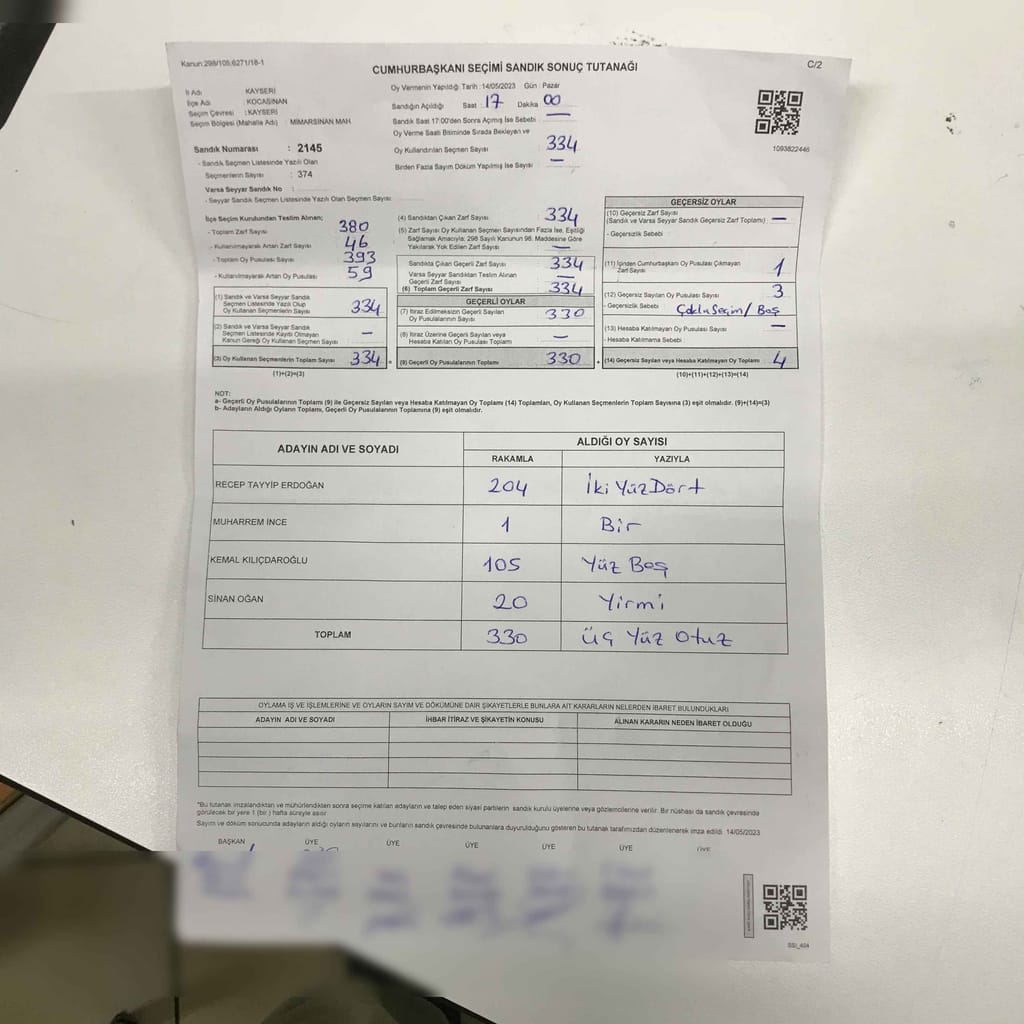 Kanun:298/105,6271/18-1
CUMHURBAŞKANI SEÇİMİ SANDIK SONUÇ TUTANAĞI
C/2
İl Adı : KAYSERİ
İlçe Adı : KOCASİNAN
Seçim Çevresi : KAYSERİ
Seçim Bölgesi (Mahalle Adı) : MİMARSİNAN MAH.
Sandık Numarası : 2145
- Sandık Seçmen Listesinde Yazılı Olan
Seçmenlerin Sayısı : 374
Varsa Seyyar Sandık No :
- Seyyar Sandık Seçmen Listesinde Yazılı Olan Seçmen Sayısı
Oy Vermenin Yapıldığı Tarih : 14/05/2023 Gün : Pazar
Sandığın Açıldığı Saat 17 Dakika 00
Sandık Saat 17:00'den Sonra Açılmış İse Sebebi : —
Oy Verme Saati Bitiminde Sırada Bekleyen ve
Oy Kullandırılan Seçmen Sayısı : 334
Birden Fazla Sayım Döküm Yapılmış İse Sayısı : —
1093822446
İlçe Seçim Kurulundan Teslim Alınan;
- Toplam Zarf Sayısı : 380
- Kullanılmayarak Artan Zarf Sayısı : 46
- Toplam Oy Pusulası Sayısı : 393
- Kullanılmayarak Artan Oy Pusulası : 59
(1) Sandık ve Varsa Seyyar Sandık
Seçmen Listesinde Yazılı Olup
Oy Kullanan Seçmenlerin Sayısı 334
(2) Sandık ve Varsa Seyyar Sandık
Seçmen Listesinde Kaydı Olmayan
Kanun Gereği Oy Kullanan Seçmen Sayısı —
(3) Oy Kullanan Seçmenlerin Toplam Sayısı 334 =
(1)+(2)=(3)
(4) Sandıktan Çıkan Zarf Sayısı : 334
(5) Zarf Sayısı Oy Kullanan Seçmen Sayısından Fazla İse, Eşitliği
Sağlamak Amacıyla; 298 Sayılı Kanunun 98. Maddesine Göre
Yakılarak Yok Edilen Zarf Sayısı : —
Sandıkta Çıkan Geçerli Zarf Sayısı : 334
Varsa Seyyar Sandıktan Teslim Alınan
Geçerli Zarf Sayısı : —
(6) Toplam Geçerli Zarf Sayısı : 334
GEÇERLİ OYLAR
(7) İtiraz Edilmeksizin Geçerli Sayılan
Oy Pusulalarının Sayısı : 330
(8) İtiraz Üzerine Geçerli Sayılan veya
Hesaba Katılan Oy Pusulası Toplamı : —
(9) Geçerli Oy Pusulalarının Toplamı 330 +
GEÇERSİZ OYLAR
(10) Geçersiz Zarf Sayısı
(Sandık ve Varsa Seyyar Sandık Geçersiz Zarf Toplamı) : —
- Geçersizlik Sebebi :
(11) İçinden Cumhurbaşkanı Oy Pusulası Çıkmayan
Zarf Sayısı 1
(12) Geçersiz Sayılan Oy Pusulası Sayısı : 3
- Geçersizlik Sebebi : Çoklu Seçim / Boş
(13) Hesaba Katılmayan Oy Pusulası Sayısı : —
- Hesaba Katılmama Sebebi :
(14) Geçersiz Sayılan veya Hesaba Katılmayan Oy Toplamı : 4
(10)+(11)+(12)+(13)=(14)
NOT:
a- Geçerli Oy Pusulalarının Toplamı (9) ile Geçersiz Sayılan veya Hesaba Katılmayan Oy Toplamı (14) Toplamları, Oy Kullanan Seçmenlerin Toplam Sayısına (3) eşit olmalıdır. (9)+(14)=(3)
b- Adayların Aldığı Oyların Toplamı, Geçerli Oy Pusulalarının Toplamına (9) eşit olmalıdır.
ADAYIN ADI VE SOYADI
ALDIĞI OY SAYISI
RAKAMLA YAZIYLA
RECEP TAYYİP ERDOĞAN 204 İki YüzDört
MUHARREM İNCE 1 Bir
KEMAL KILIÇDAROĞLU 105 Yüz Beş
SİNAN OĞAN 20 Yirmi
TOPLAM 330 Üç Yüz Otuz
OYLAMA İŞ VE İŞLEMLERİNE VE OYLARIN SAYIM VE DÖKÜMÜNE DAİR ŞİKAYETLERLE BUNLARA AİT KARARLARIN NELERDEN İBARET BULUNDUKLARI
ADAYIN ADI VE SOYADI İHBAR İTİRAZ VE ŞİKAYETİN KONUSU ALINAN KARARIN NEDEN İBARET OLDUĞU
*Bu tutanak imzalandıktan ve mühürlendikten sonra seçime katılan adayların ve talep eden siyasi partilerin sandık kurulu üyelerine veya gözlemcilerine verilir. Bir nüshası da sandık çevresinde
görülecek bir yere 1 (bir ) hafta süreyle asılır
Sayım ve döküm sonucunda adayların aldığı oyların sayılarını ve bunların sandık çevresinde bulunanlara duyurulduğunu gösteren bu tutanak tarafımızdan düzenlenerek imza edildi. 14/05/2023
BAŞKAN ÜYE ÜYE ÜYE ÜYE ÜYE ÜYE